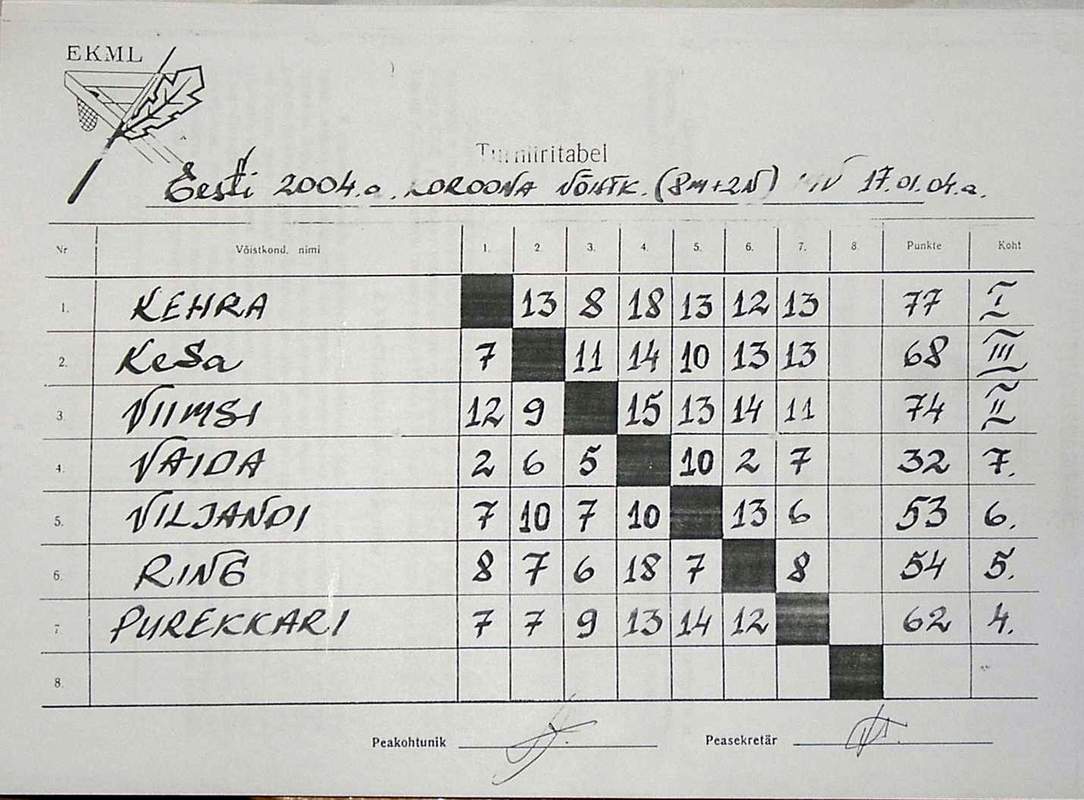 EKML
Turniiritabel
Eesti 2004.a. KOROONA VÕISTK. (8M+2N) MV 17.01.04.a.
Nr Võistkond. nimi 1. 2. 3. 4. 5. 6. 7. 8. Punkte Koht
1. KEHRA 13 8 18 13 12 13 77 I
2. KeSa 7 11 14 10 13 13 68 III
3. VIIMSI 12 9 15 13 14 11 74 II
4. VAIDA 2 6 5 10 2 7 32 7.
5. VILJANDI 7 10 7 10 13 6 53 6.
6. RING 8 7 6 18 7 8 54 5.
7 PUREKKARI 7 7 9 13 14 12 62 4.
8.
Peakohtunik Peasekretär